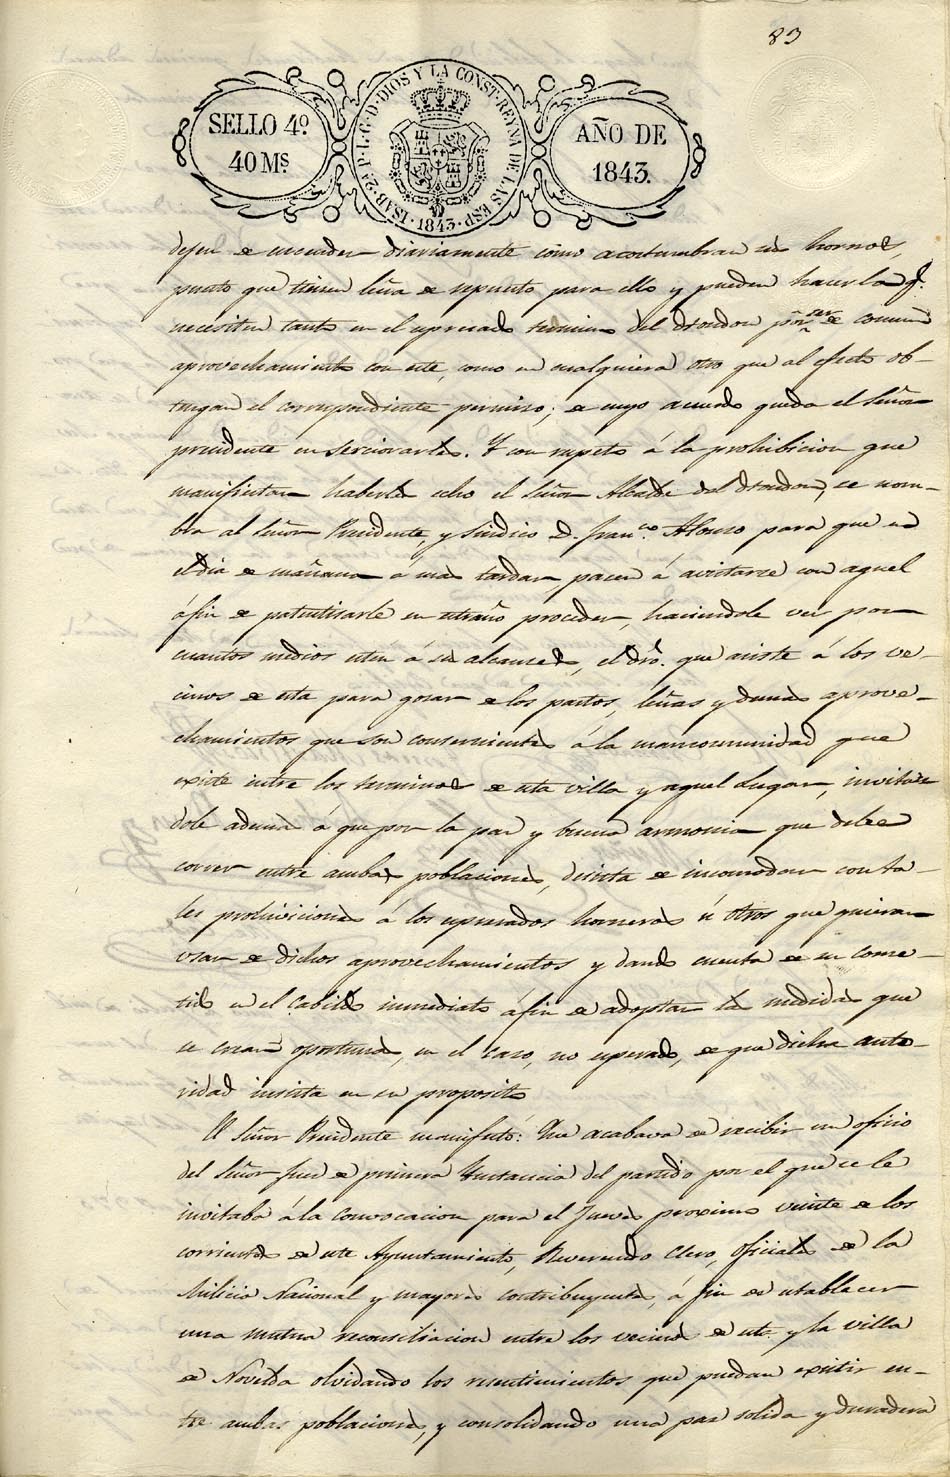 83
SELLO 4º
40 Ms.
ISAB. 2ª P. L. G. D. DIOS Y LA CONST. REYNA DE LAS ESP. 1843.
AÑO DE
1843.
dejen de encender diariamente como acostumbran sus hornos,
puesto que tienen leña de repuesto para ello y pueden hacer la q.
necesiten tanto en el espresado termino del Hondon por ser de comun
aprovechamiento con este, como en cualquiera otro que al efecto ob-
tengan el correspondiente permiso; de cuyo acuerdo queda el Señor
presidente en serciorarles. Y con respeto á la prohibicion que
manifiestan haberles echo el Señor Alcalde del Hondon, se nom-
bra al Señor Presidente, y Sindico D. Franco. Alonso para que en
el dia de mañana á mas tardar pacen á avistarse con aquel
á fin de patentisarle su estraño proceder, haciendole ver por
cuantos medios esten á su alcance, el dro. que asiste á los ve-
cinos de esta para gosar de los pastos, leñas y demas aprove-
chamientos que son consernientes á la mancomunidad que
existe entre los terminos de esta villa y aquel Lugar, invitan
dole ademas á que por la paz y buena armonia que debe
correr entre ambas poblaciones, desista de incomodar con ta-
les prohiviciones á los espresados horneros ú otros que quieran
usar de dichos aprovechamientos y dando cuenta de su come-
tido en el Cabildo inmediato á fin de adoptar las medidas que
se crean oportunas, en el caso, no esperado, de que dicha auto-
ridad insista en su proposito
El Señor Presidente manifestó: Que acabava de recibir un oficio
del Señor Juez de primera Instancia del partido por el que se le
invitaba á la convocacion para el Jueves proximo veinte de los
corrientes de este Ayuntamiento, Reverendo Clero, oficiales de la
Milicia Nacional y mayores contribuyentes, á fin de establecer
una mutua reconsiliacion entre los vecinos de esta y la villa
de Novelda olvidando los resentimientos que puedan existir en-
tre ambas poblaciones, y consolidando una paz solida y duradera